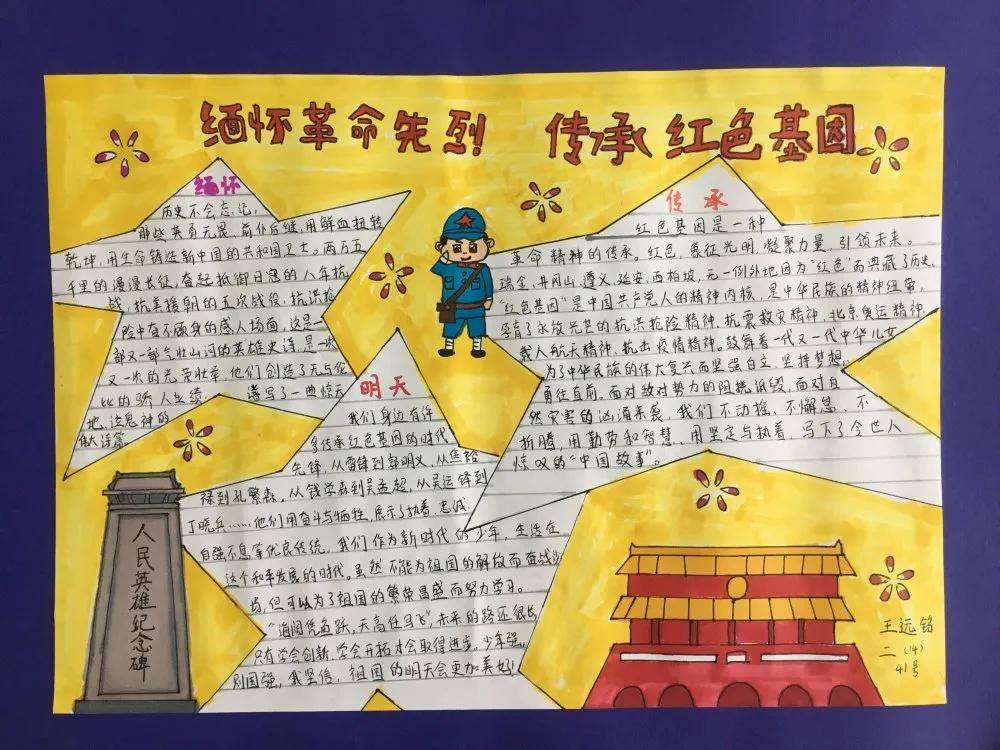 缅怀革命先烈 传承红色基因
缅怀
历史不会忘记,
那些英勇无畏、前仆后继,用鲜血扭转
乾坤,用生命铸造新中国的共和国卫士。两万五
千里的漫漫长征,奋起抵御日寇的八年抗
战,抗美援朝的五次战役,抗洪抢
险中奋不顾身的感人场面,这是一
部又一部气壮山河的英雄史诗是一次
又一次的光荣壮举,他们创造了无与伦
比的骄人业绩, 谱写了一曲惊天
地,泣鬼神的
伟大诗篇
传承
红色基因是一种
革命精神的传承。红色,象征光明,凝聚力量,引领未来。
瑞金、井冈山、遵义、延安、西柏坡,无一例外地因为“红色”而典藏了历史。
“红色基因”是中国共产党人的精神内核,是中华民族的精神纽带,
孕育了永放光芒的抗洪抢险精神,抗震救灾精神,北京奥运精神,
载人航天精神,抗击疫情精神。鼓舞着一代又一代中华儿女
为了中华民族的伟大复兴而坚强自立,坚持梦想,
勇往直前,面对敌对势力的阻挠诋毁,面对自
然灾害的汹涌来袭,我们不动摇、不懈怠、不
折腾,用勤劳和智慧、用坚定与执着,写下了令世人
惊叹的“中国故事”。
明天
我们身边有许
多传承红色基因的时代
先锋,从雷锋到郭明义,从焦裕
禄到孔繁森,从钱学森到吴孟超,从吴运铎到
丁晓兵……他们用奋斗与牺牲,展示了执着,忠诚,
自强不息等优良传统。我们作为新时代的少年,生活在
这个和平发展的时代。虽然不能为祖国的解放而奋战沙
场,但可以为了祖国的繁荣昌盛而努力学习。
“海阔凭鱼跃,天高任鸟飞”,未来的路还很长,
只有学会创新,学会开拓才会取得进步。少年强,
则国强,我坚信,祖国的明天会更加美好!
人民英雄纪念碑
王远铭
二(14)
41号